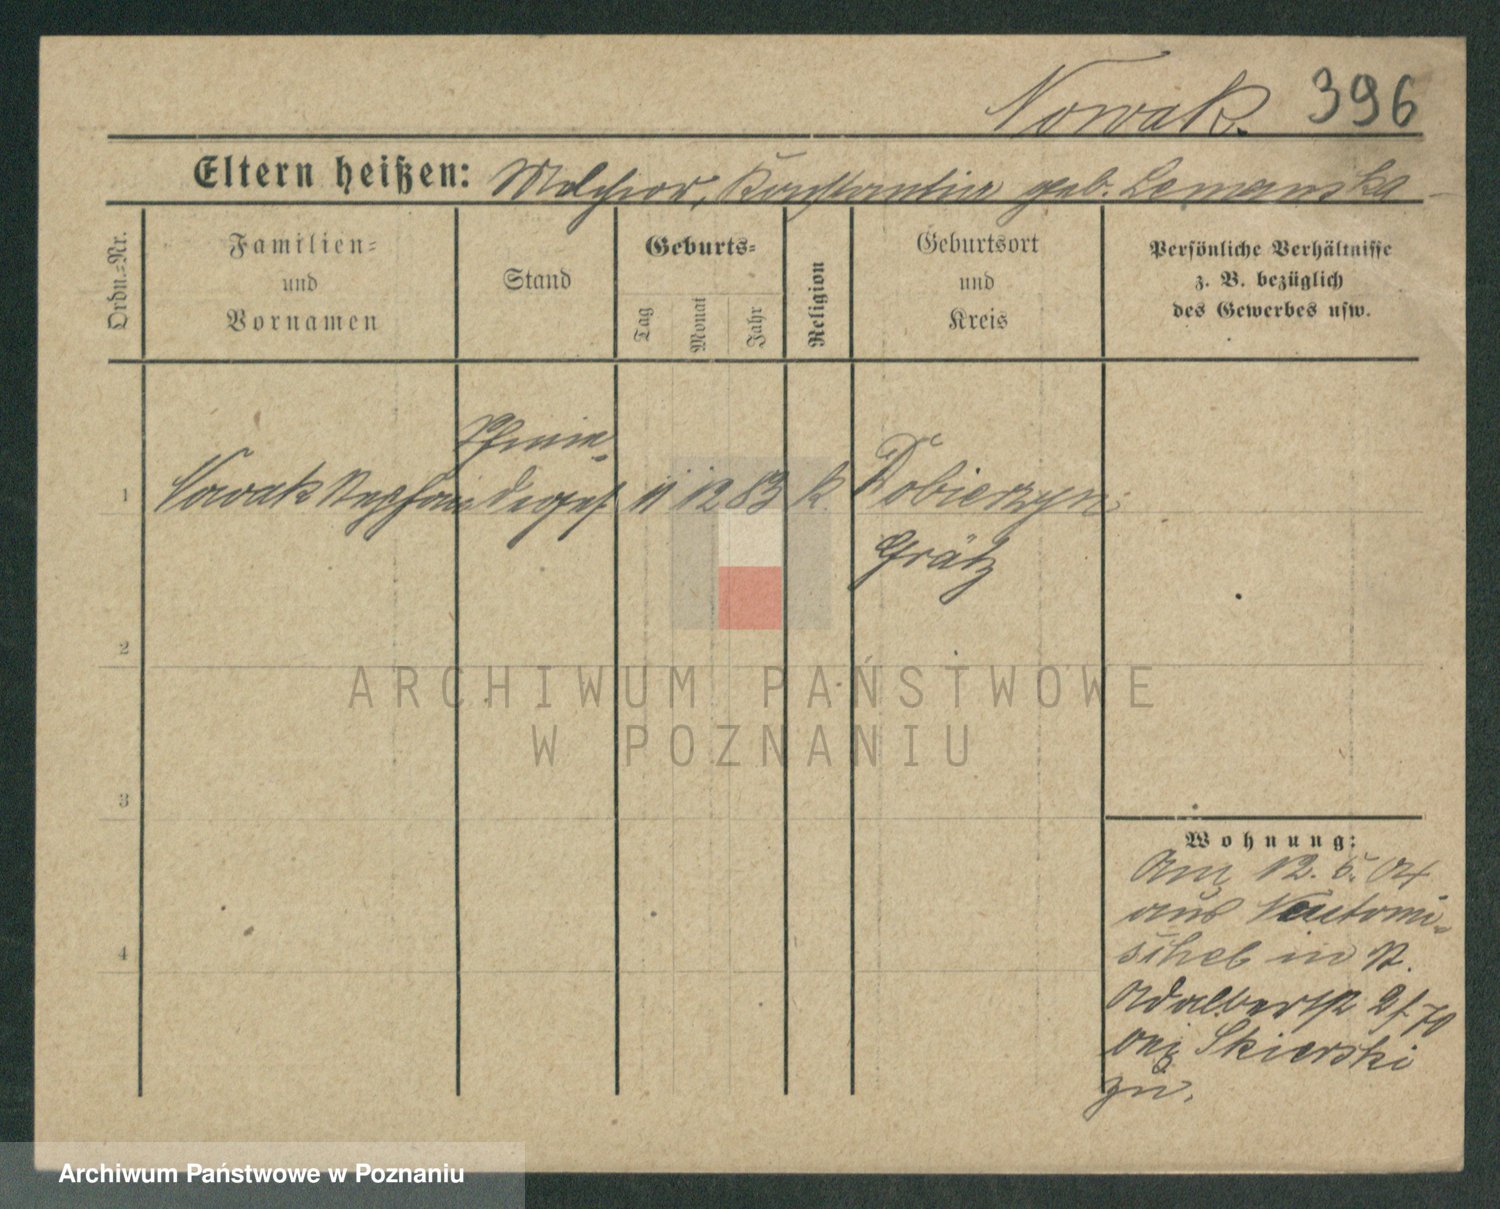 Nowak. 396
Eltern heißen: Melchior, Konstantin geb. Lemanska
Ordn.=Nr.
Familien=
und
Vornamen
Stand
Geburts=
Tag
Monat
Jahr
Religion
Geburtsort
und
Kreis
Persönliche Verhältnisse
z. B. bezüglich
des Gewerbes usw.
1 Nowak Stephan 11 12 83 k. Dobierzyn
Grätz
2
3
4
Wohnung:
Am 12. 5. 04
aus Neutomi=
schel in St.
Adalbertstr 2 f 70
bei Skierski
zu.
ARCHIWUM PAŃSTWOWE
W POZNANIU
Archiwum Państwowe w Poznaniu